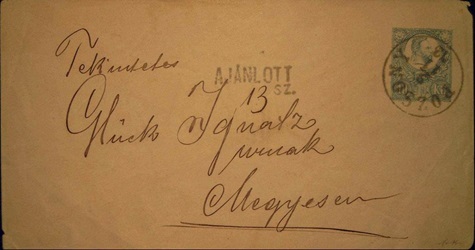 Tekintetes
AJÁNLOTT
SZ.
13
Glück Ignátz
urnak
Megyesen